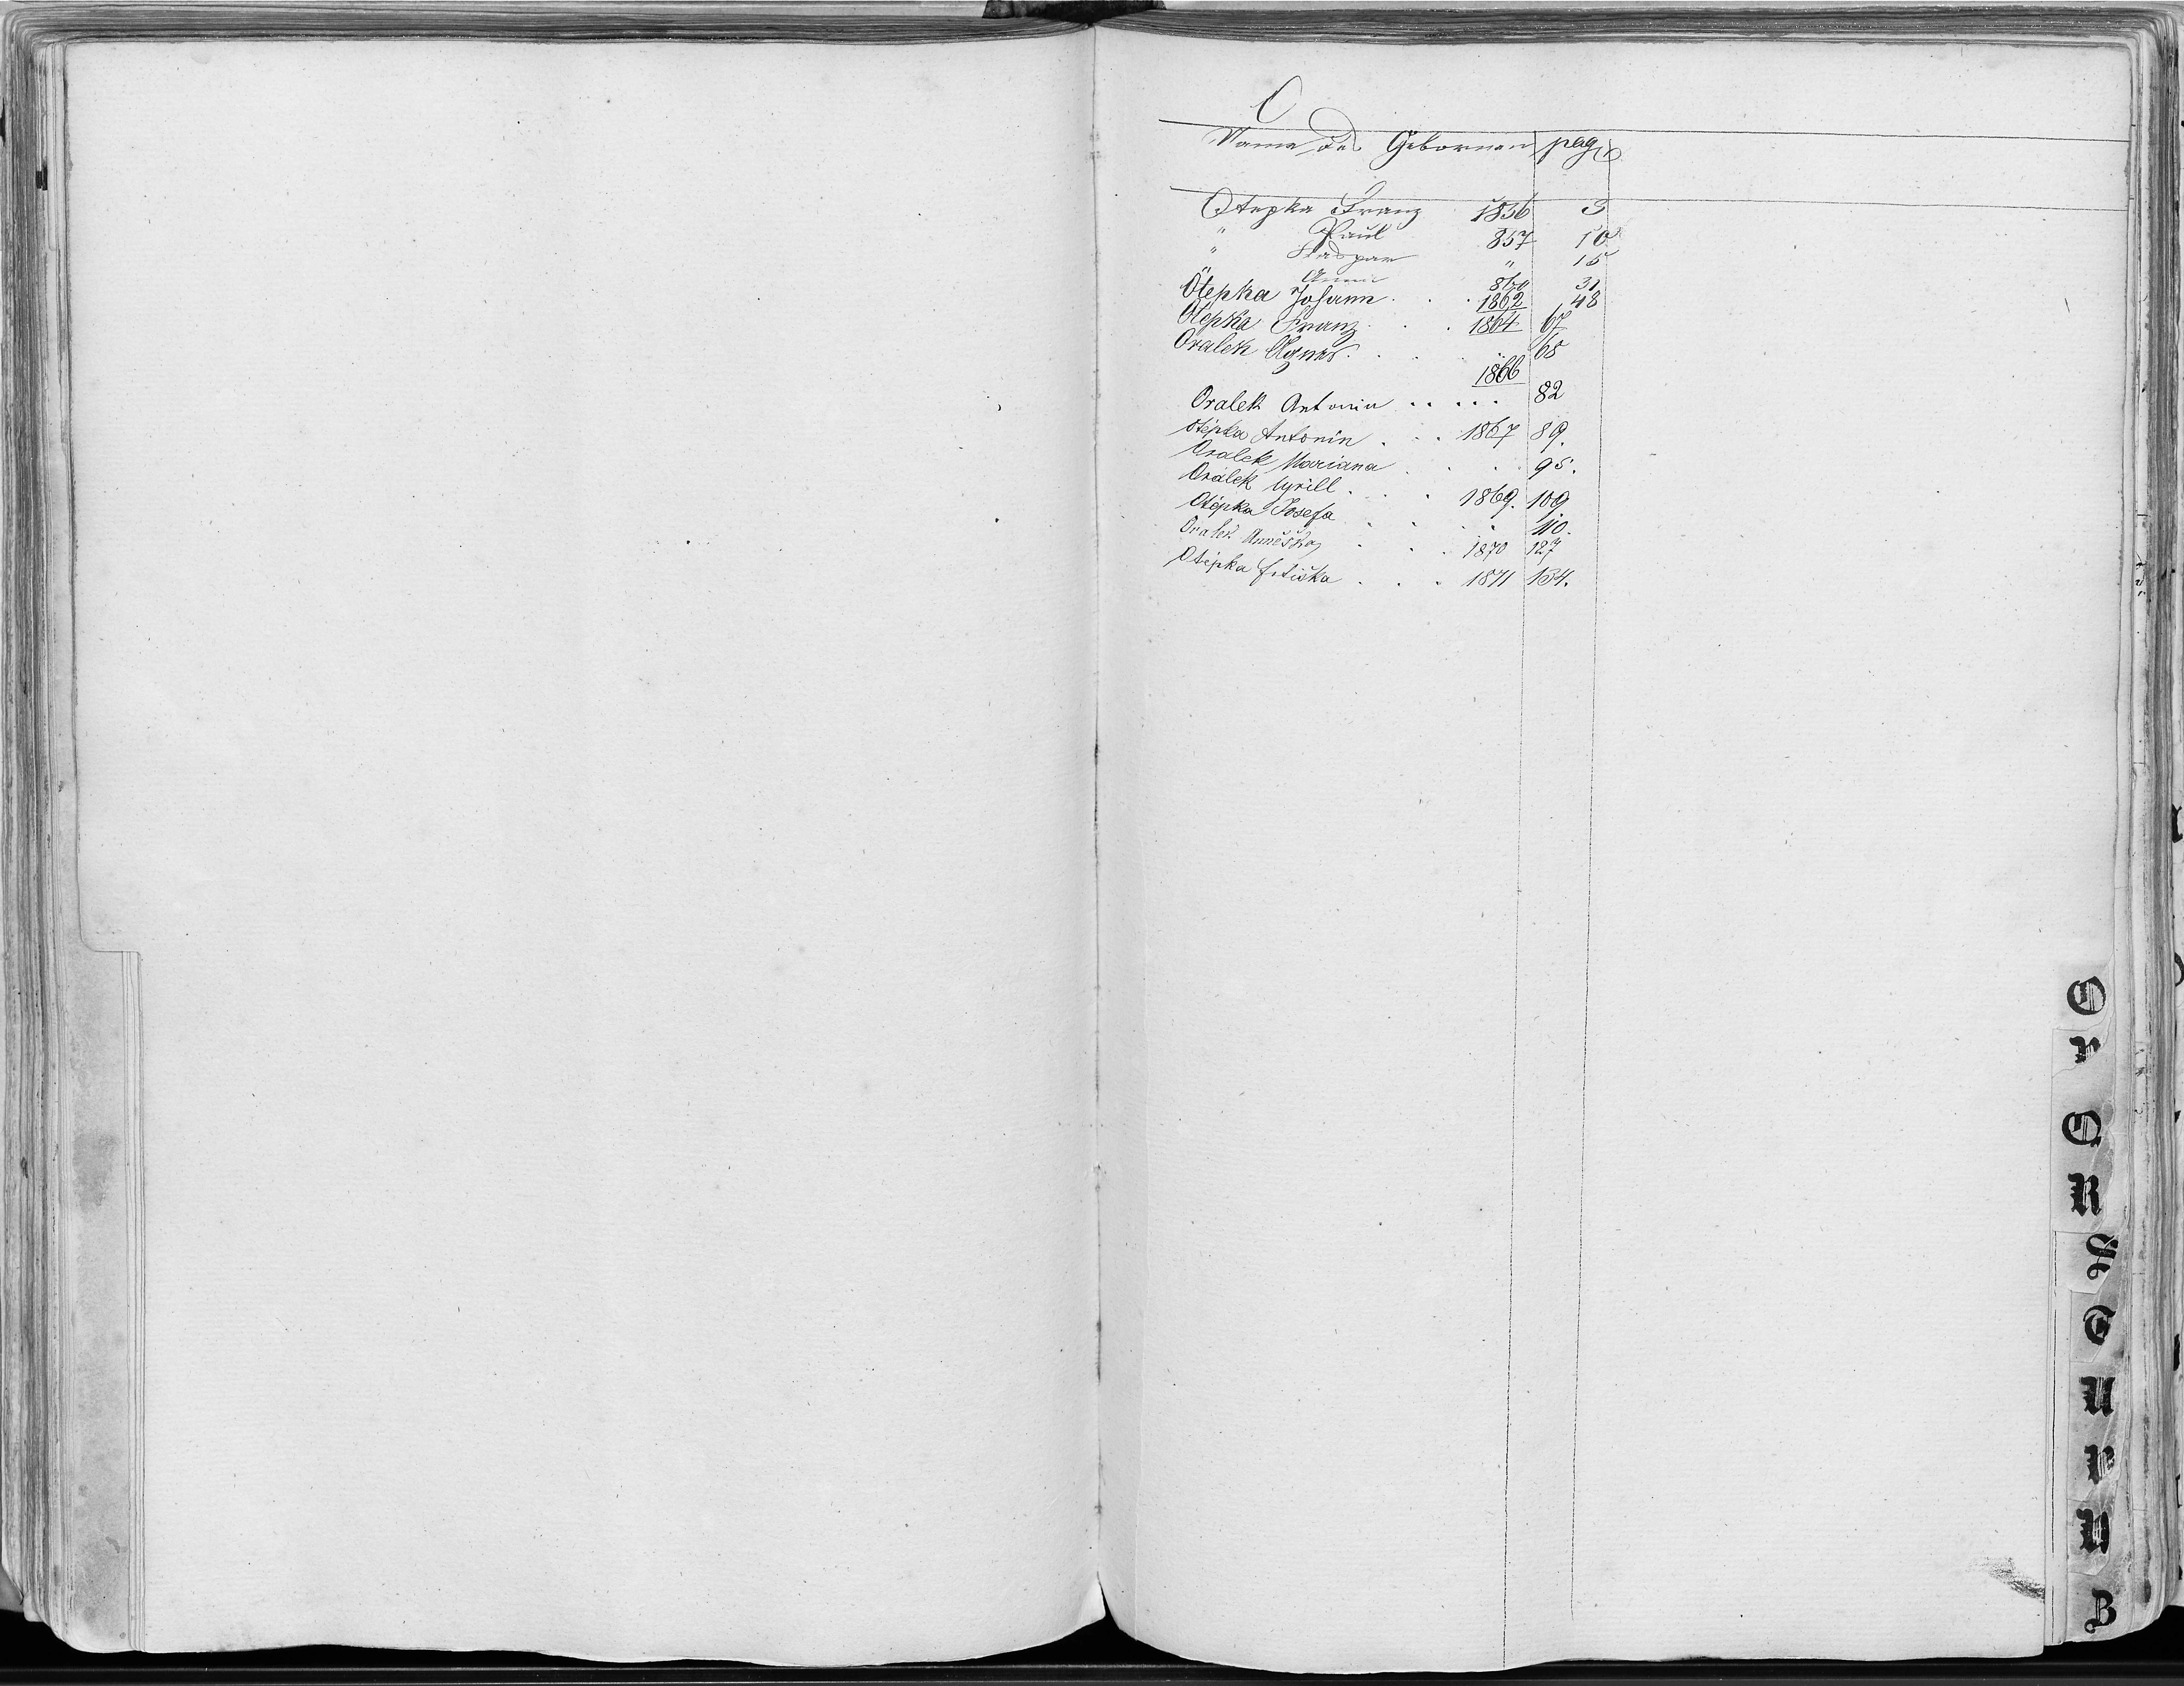 O
Name des Gebornen pag
Otepka Franz 1856 3
" Paul 857 10
" Kaspar " 15
" Anna 860 31
Otepka Johann . . . 1862 48
Otepka Franz . . . 1864 67
Oralek Agnes . . . " 68
1866
Oralek Antonin . . . . . 82
Otépka Antonin . . . 1867 89.
Oralek Mariana . . . . 95.
Orálek Cyrill . . . 1869. 109
Otépka Josefa . . . " 110.
Oralek Anněžka . . . 1870 127
Otépka Frtiška . . . 1871 134.
O
P
Q
R
S
T
U
V
W
Z